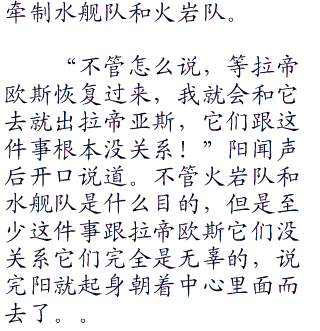 牵制水舰队和火岩队。
“不管怎么说，等拉帝
欧斯恢复过来，我就会和它
去就出拉帝亚斯，它们跟这
件事根本没关系！”阳闻声
后开口说道。不管火岩队和
水舰队是什么目的，但是至
少这件事跟拉帝欧斯它们没
关系它们完全是无辜的，说
完阳就起身朝着中心里面而
去了。。